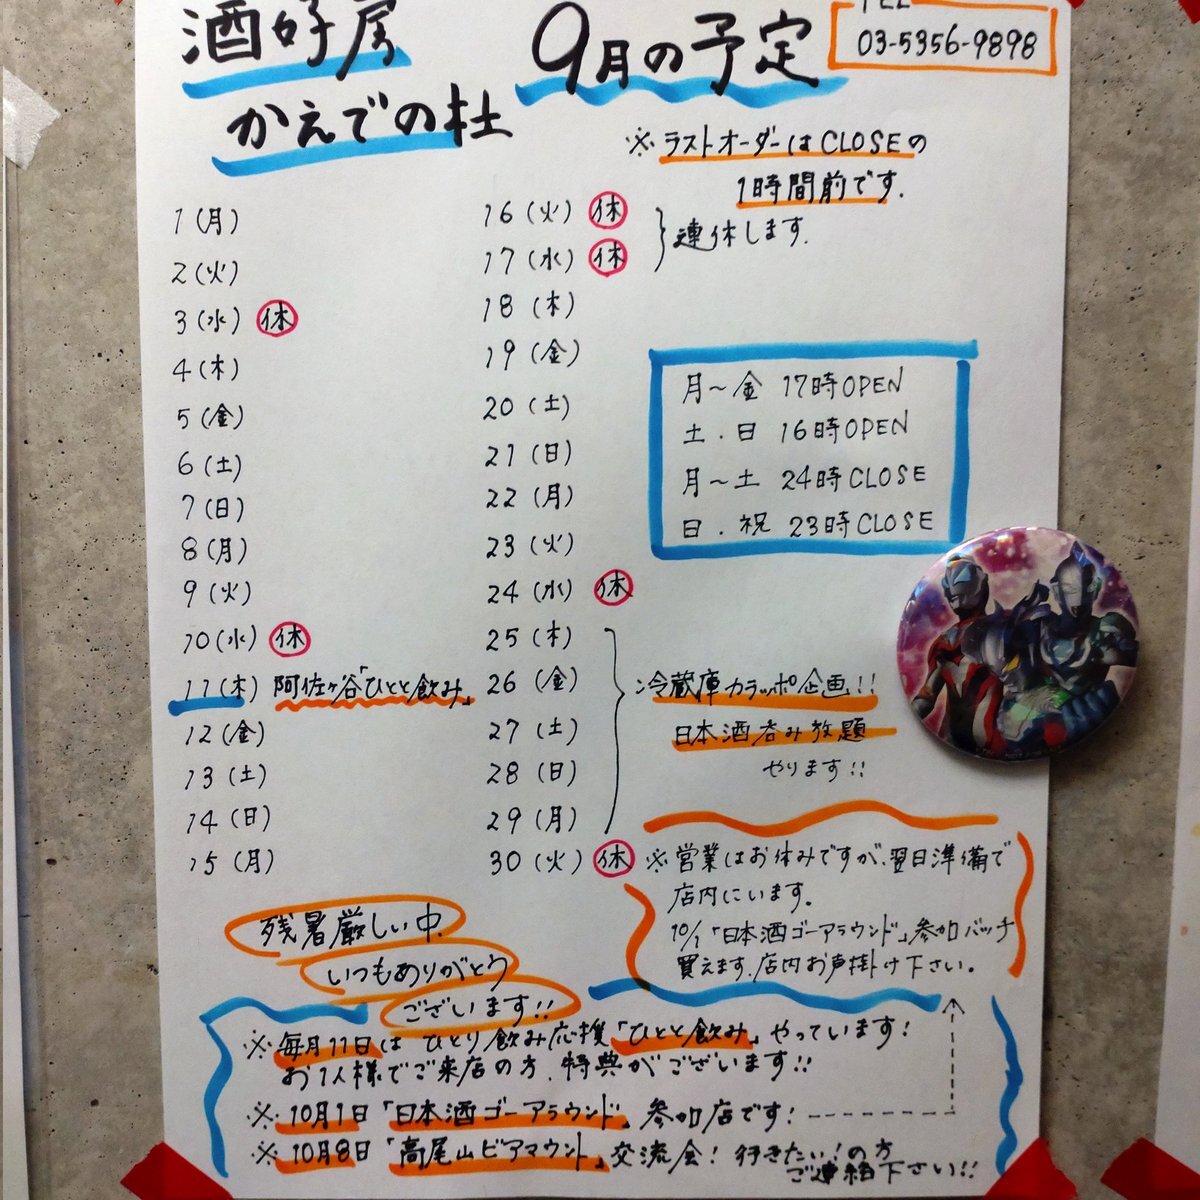 酒好房
9月の予定
TEL
03-5356-9898
かえでの杜
※ラストオーダーはCLOSEの
1時間前です.
1(月)
2(火)
3(水) 休
4(木)
5(金)
6(土)
7(日)
8(月)
9(火)
10(水) 休
11(木) 阿佐ヶ谷「ひとと飲み」
12(金)
13(土)
14(日)
15(月)
16(火) 休
17(水) 休
連休します.
18(木)
19(金)
20(土)
21(日)
22(月)
23(火)
24(水) 休
25(木)
26(金)
27(土)
28(日)
29(月)
30(火) 休
月〜金 17時OPEN
土.日 16時OPEN
月〜土 24時CLOSE
日.祝 23時CLOSE
冷蔵庫カラッポ企画!!
日本酒呑み放題
やります!!
※営業はお休みですが、翌日準備で
店内にいます。
10/1「日本酒ゴーアラウンド」参加バッチ
買えます、店内お声掛け下さい。
残暑厳しい中、
いつもありがとう
ございます!!
※毎月11日はひとり飲み応援「ひとと飲み」やっています!
お1人様でご来店の方、特典がございます!!
※10月1日「日本酒ゴーアラウンド」参加店です!
※10月8日「高尾山ビアマウント」交流会!行きたい!の方
ご連絡下さい!!